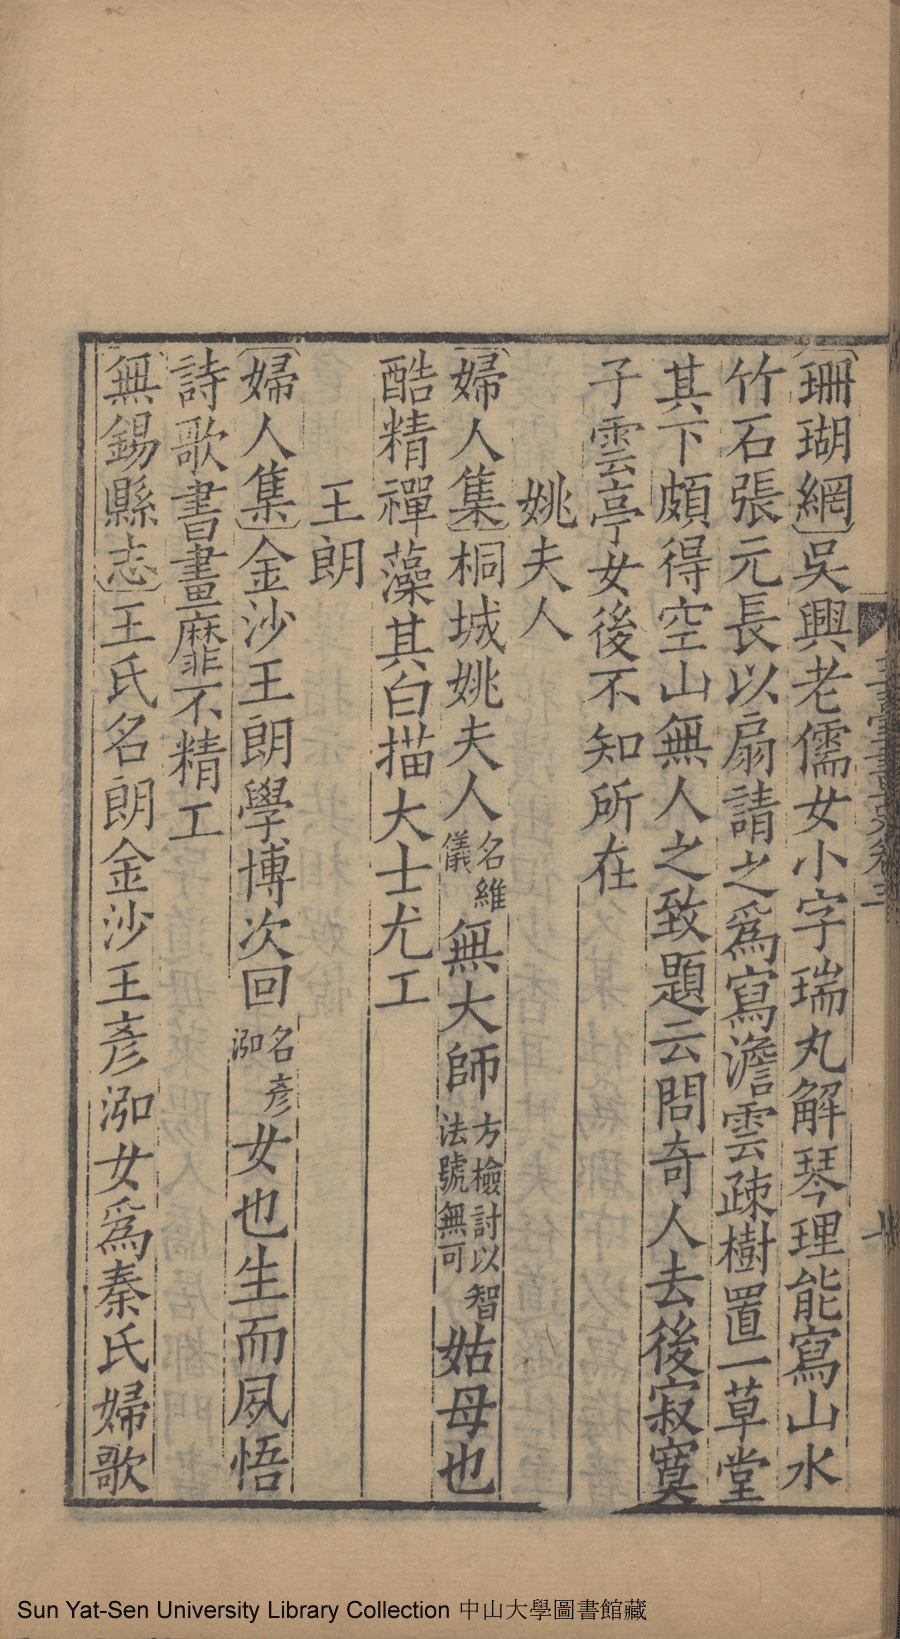 〔珊瑚網〕吳興老儒女小字瑞丸解琴理能寫山水
竹石張元長以扇請之爲寫澹雲疎樹置一草堂
其下頗得空山無人之致題云問奇人去後寂寞
子雲亭女後不知所在
姚夫人
〔婦人集〕桐城姚夫人名維儀無大師方檢討以智法號無可姑母也
酷精禪藻其白描大士尤工
王朗
〔婦人集〕金沙王朗學博次回名彥泓女也生而夙悟
詩歌書畫靡不精工
〔無錫縣志〕王氏名朗金沙王彥泓女爲秦氏婦歌
Sun Yat-Sen University Library Collection 中山大學圖書館藏